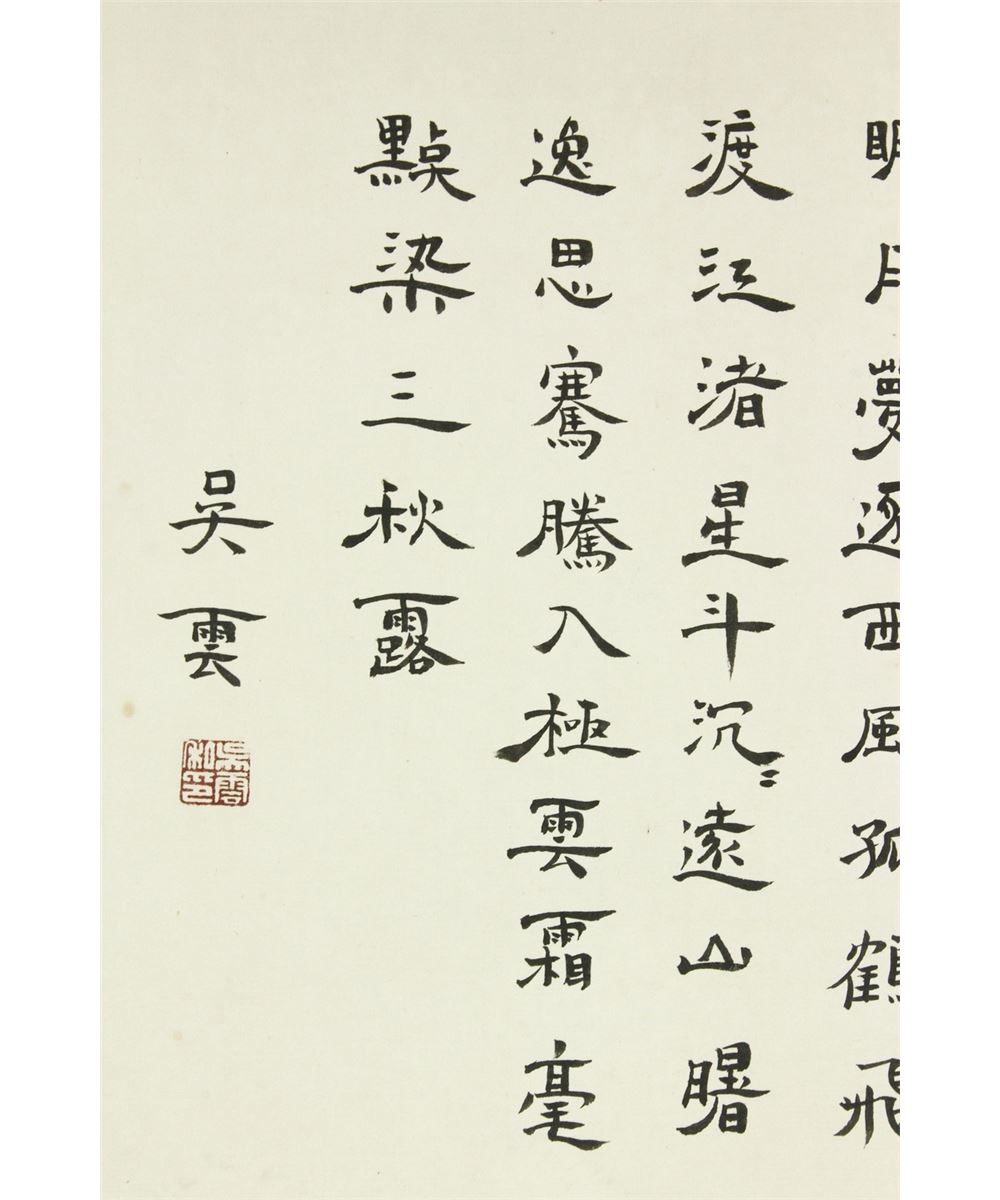 明月夢逐西風孤鶴飛
渡江渚星斗沉〻遠山曙
逸思騫騰入極雲霜毫
點染三秋露
吳雲
吳雲私印